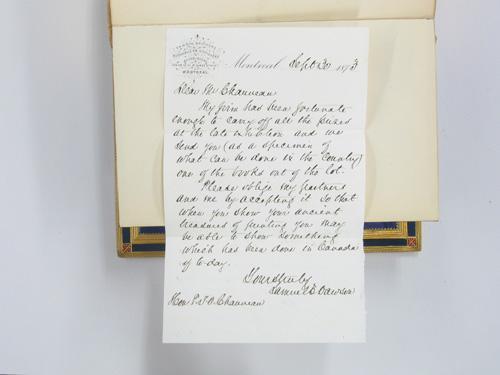 DAWSON BROTHERS
MONTREAL
Montreal Sept 30 1873
Dear Mr Chauveau
My firm has been fortunate
enough to carry off all the prizes
at the late exhibition and we
send you (as a specimen of
what can be done in the Country)
one of the books out of the lot.
Please oblige my partners
and me by accepting it so that
when you show your ancient
treasures of printing you may
be able to show something
which has been done in Canada
of to-day.
Yours truly
Samuel E Dawson
Hon P.J.O. Chauveau